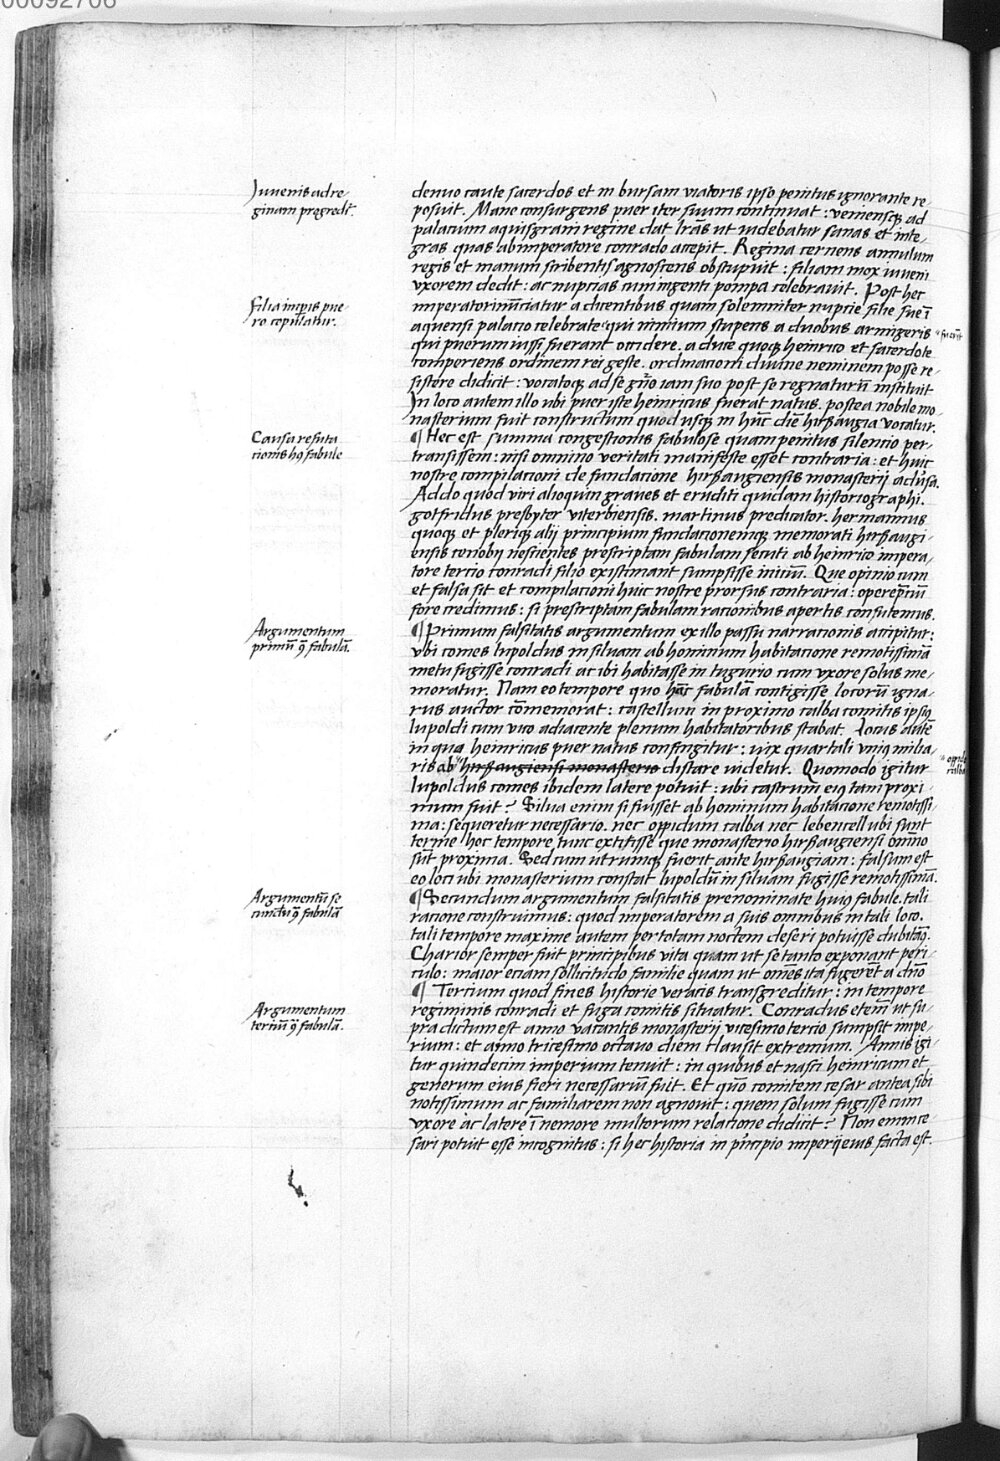 00092706
Juvenis ad re-
ginam progredit͂.
Filia impris pue-
ro copulatur.
Causa refuta
tionis hꝰ fabule
Argumentum
primū ꝯ̄ fabulā.
Argumentū se
cundū ꝯ̄ fabulā
Argumentum
tertiū ꝯ̄ fabulā.
denuo caute sacerdos et in bursam viatoris ipso penitus ignorante re
posuit. Mane consurgens puer iter suum continuat : veniensqꝫ ad
palatium aquisgrani regine dat lr̄as ut videbatur sanas et inte-
gras quas ab imperatore conrado accepit. Regina cernens annulum
regis et manum scribentis agnoscens obstupuit : filiam mox iuveni
vxorem dedit : ac nuptias cum ingenti pompa celebravit. Post hec
imperatori nūciatur a dicentibus quam solemniter nuptie filie sue ī
aquensi palatio celebrate " qui nimium stupens a duobus armigeris " fuerīt
qui puerum iussi fuerant occidere . a duce quoqꝫ heinrico et sacerdote
comperiens ordinem rei geste . ordinacioni divine neminem posse re-
sistere didicit : vocatoqꝫ ad se gn̄ro iam suo post se regnaturū instituit
In loco autem illo ubi puer iste heinricus fuerat natus . postea nobile mo-
nasterium fuit constructum quod usqꝫ in hūc diē hirßaugia vocatur.
¶ Hec est summa congestionis fabulose quam penitus silencio per-
transissem : nisi omnino veritati manifeste esset contraria : et huic
nostre compilacioni de fundacione hirßaugiensis monasterij adūsa.
Addo quod viri alioquin graves et eruditi quidam historiographi .
gotfridus presbyter viterbiensis . martinus predicator . hermannus
quoqꝫ et pleriqꝫ alij principium fundacionemqꝫ memorati hirßaugi-
ensis cenobij nescientes prescriptam fabulam secuti ab heinrico impera-
tore tercio conradi filio existimant sumpsisse iniciū. Que opinio cum
et falsa sit et compilacioni huic nostre prorsus contraria : operep̄ciū
fore credimus : si prescriptam fabulam racionibus apertis confutemus.
¶ Primum falsitatis argumentum ex illo passu narracionis accipitur :
vbi comes lupoldus in silvam ab hominum habitacione remotissimā
metu fugisse conradi ac ibi habitasse in tugurio cum vxore solus me-
moratur. Nam eo tempore quo hāc fabulā contigisse locorū igna-
rus auctor cōmemorat : castellum in proximo calba comitis ipsiꝰ
lupoldi cum vico adiacente plenum habitatoribus stabat. Locus autē
in quo heinricus puer natus confingitur : vix quartali vniꝰ milia-
ris ab " hirßaugiensi monasterio distare videtur. Quomodo igitur " oppido calba
lupoldus comes ibidem latere potuit : ubi castrum eiꝰ tam proxi-
mum fuit ? Silva enim si fuisset ab hominum habitacione remotissi
ma : sequeretur necessario . nec oppidum calba nec lebencell ubi sunt
terme hoc tempore tunc extitisse que monasterio hirßaugiensi om̄ino
sūt proxima. Sed cum utrumqꝫ fuerit ante hirßaugiam : falsum est
eo loci ubi monasterium constat lupoldū in silvam fugisse remotissimā.
¶ Secundum argumentum falsitatis prenominate huiꝰ fabule . tali
racione construimus : quod imperatorem a suis omnibus in tali loco .
tali tempore maxime autem per totam noctem deseri potuisse dubitāꝰ.
Charior semper fuit principibus vita quam ut se tanto exponant peri-
culo : maior eciam sollicitudo familie quam ut om̄es ita fugerēt a dn̄o
¶ Tercium quod fines historie veracis transgreditur : in tempore
regiminis conradi et fuga comitis situatur. Conradus etem̄ ut su-
pra dictum est anno vacantis monasterij vicesimo tercio sumpsit impe-
rium : et anno tricesimo octavo diem clausit extremum. Annis igi
tur quindecim imperium tenuit : in quibus et nasci heinricum et
generum eius fieri necessariū fuit. Et quō comitem cesar antea sibi
notissimum ac familiarem non agnovit : quem solum fugisse cum
vxore ac latere ī nemore multorum relatione didicit ? Non enim ce
sari potuit esse incognitus : si hec historia in pr̄incipio imperij eius facta est